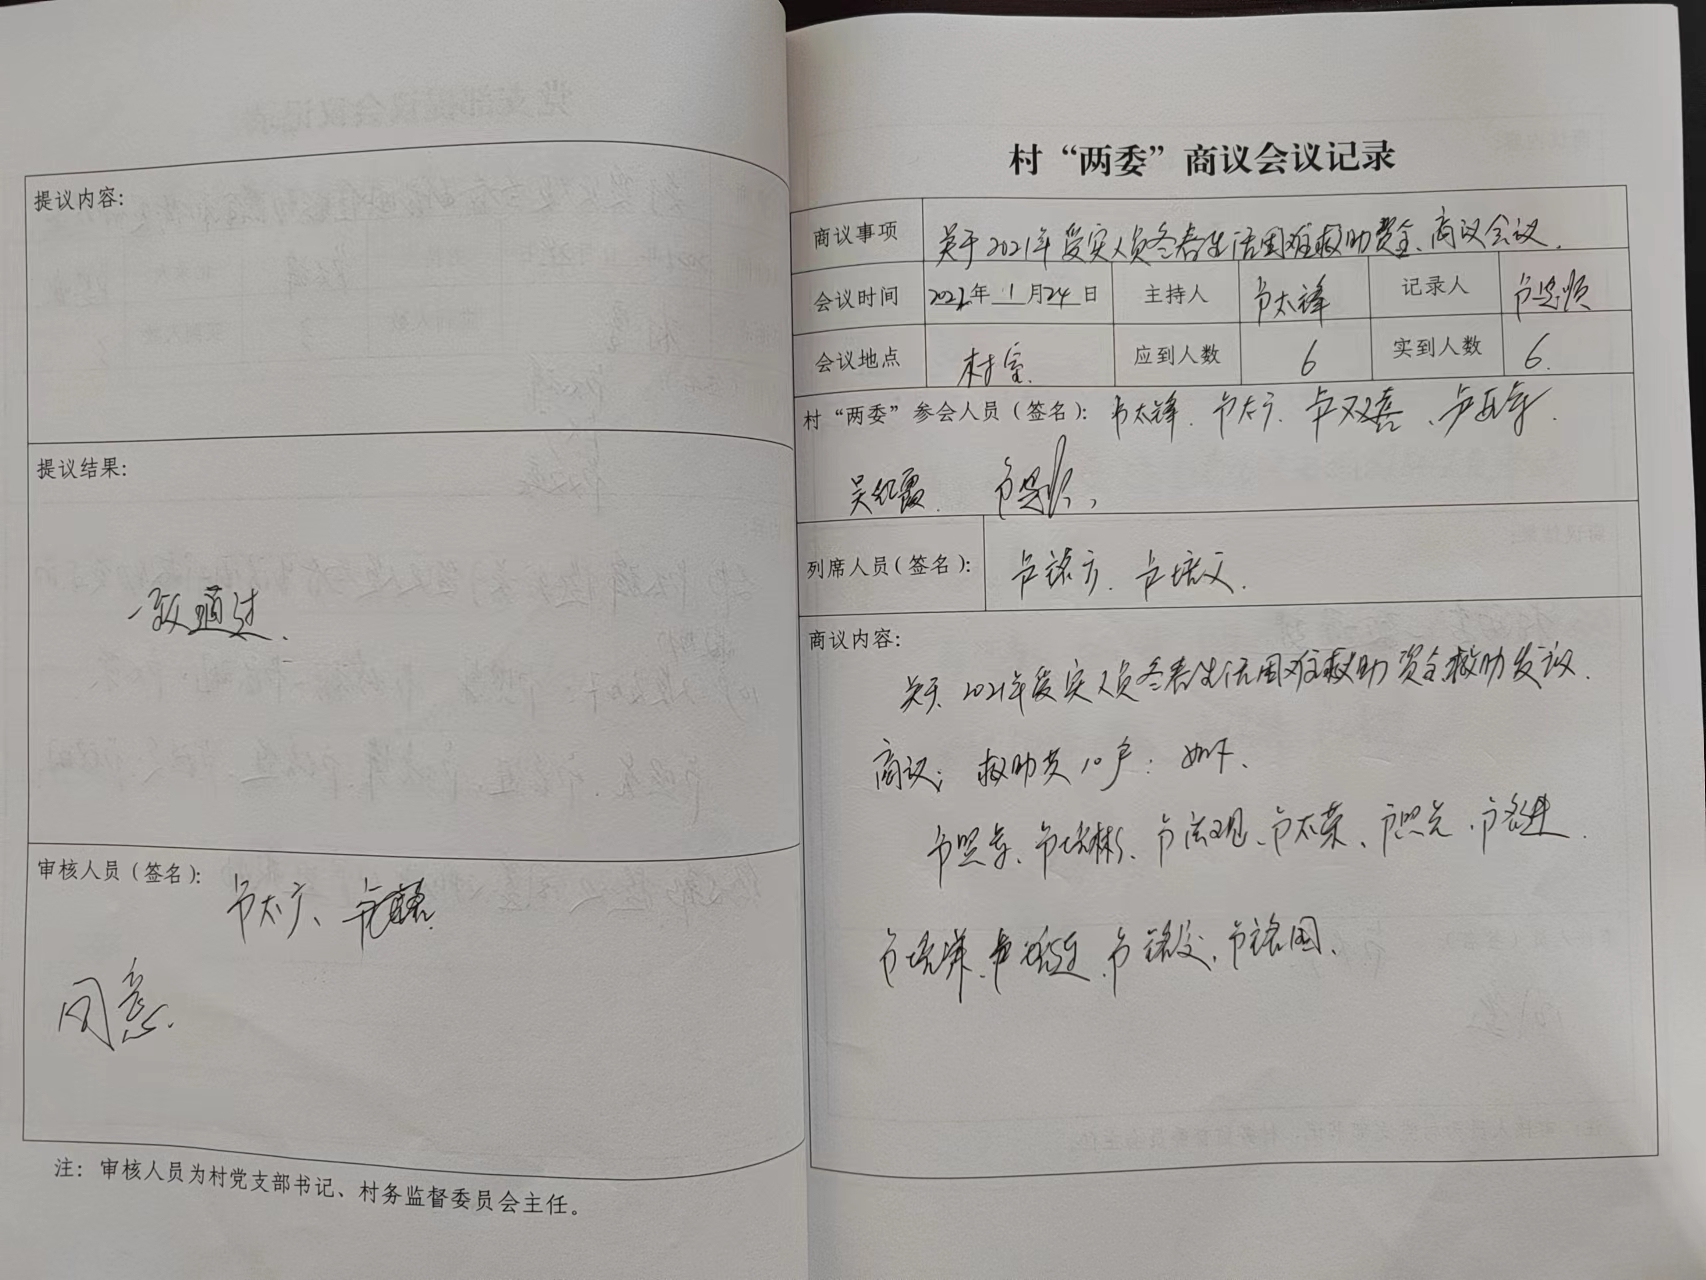 提议内容：
提议结果：
一致通过.
审核人员（签名）：
卢太广、
同意.
注：审核人员为村党支部书记、村务监督委员会主任。
村“两委”商议会议记录
商议事项 关于2021年受灾人员冬春生活困难救助资金、商议会议.
会议时间 2022年1月24日 主持人 卢太锋 记录人 卢思顺
会议地点 村室. 应到人数 6 实到人数 6.
村“两委”参会人员（签名）：卢太锋、卢太广、卢双喜、
吴红霞. 卢思顺,
列席人员（签名）：卢铭方、卢培文.
商议内容：
关于2021年受灾人员冬春生活困难救助资金救助发议.
商议：救助共10户：如下、
卢培彬、卢法现、卢太荣、卢照光、
卢铭国、